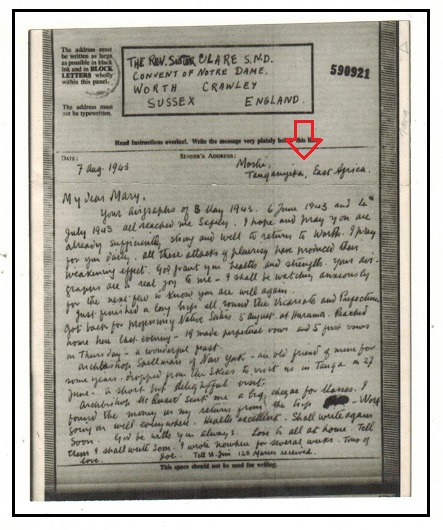 The address must
be written as large
as possible in black
ink and in BLOCK
LETTERS wholly
within this panel.
The address must
not be typewritten.
THE REV. SISTER CLARE S.N.D.
CONVENT OF NOTRE DAME.
WORTH CRAWLEY
SUSSEX ENGLAND.
590921
Read Instructions overleaf. Write the message very plainly below this line.
DATE: SENDER'S ADDRESS:
7 Aug. 1943 Moshi,
Tanganyika, East Africa.
My dear Mary,
Your airgraphs of 3 May 1943. 6 June 1943 and 4
July 1943 all reached me safely. I hope and pray you are
already sufficiently strong and well to return to Worth. I pray
for you daily. All these attacks of pleurisy have produced their
weakening effect. God grant you health and strength. Your
are a real joy to me - I shall be watching anxiously
for the next few to know you are well again.
Just finished a long trip all round the Vicariate and Prefecture
Got back for Professing Native Sisters 5 August at Huruma. Reached
home here last evening - 19 made perpetual vows and 5 first vows
on Thursday - a wonderful feast.
Archbishop Spellman of New York - an old friend of mine for
some years - dropped from the skies to visit us in Tanga on 27
June - a short but delightful visit.
Archbishop sent me a big cheque for Masses. I
found the money on my return from the trip - Work
going on well everywhere. Health excellent. Shall write again
soon. God be with you always. Love to all at home. Tell
them I shall write soon. I wrote nowhere for several weeks. Tons of
love. Joe. Tell Jim 160 Masses received.
This space should not be used for writing.